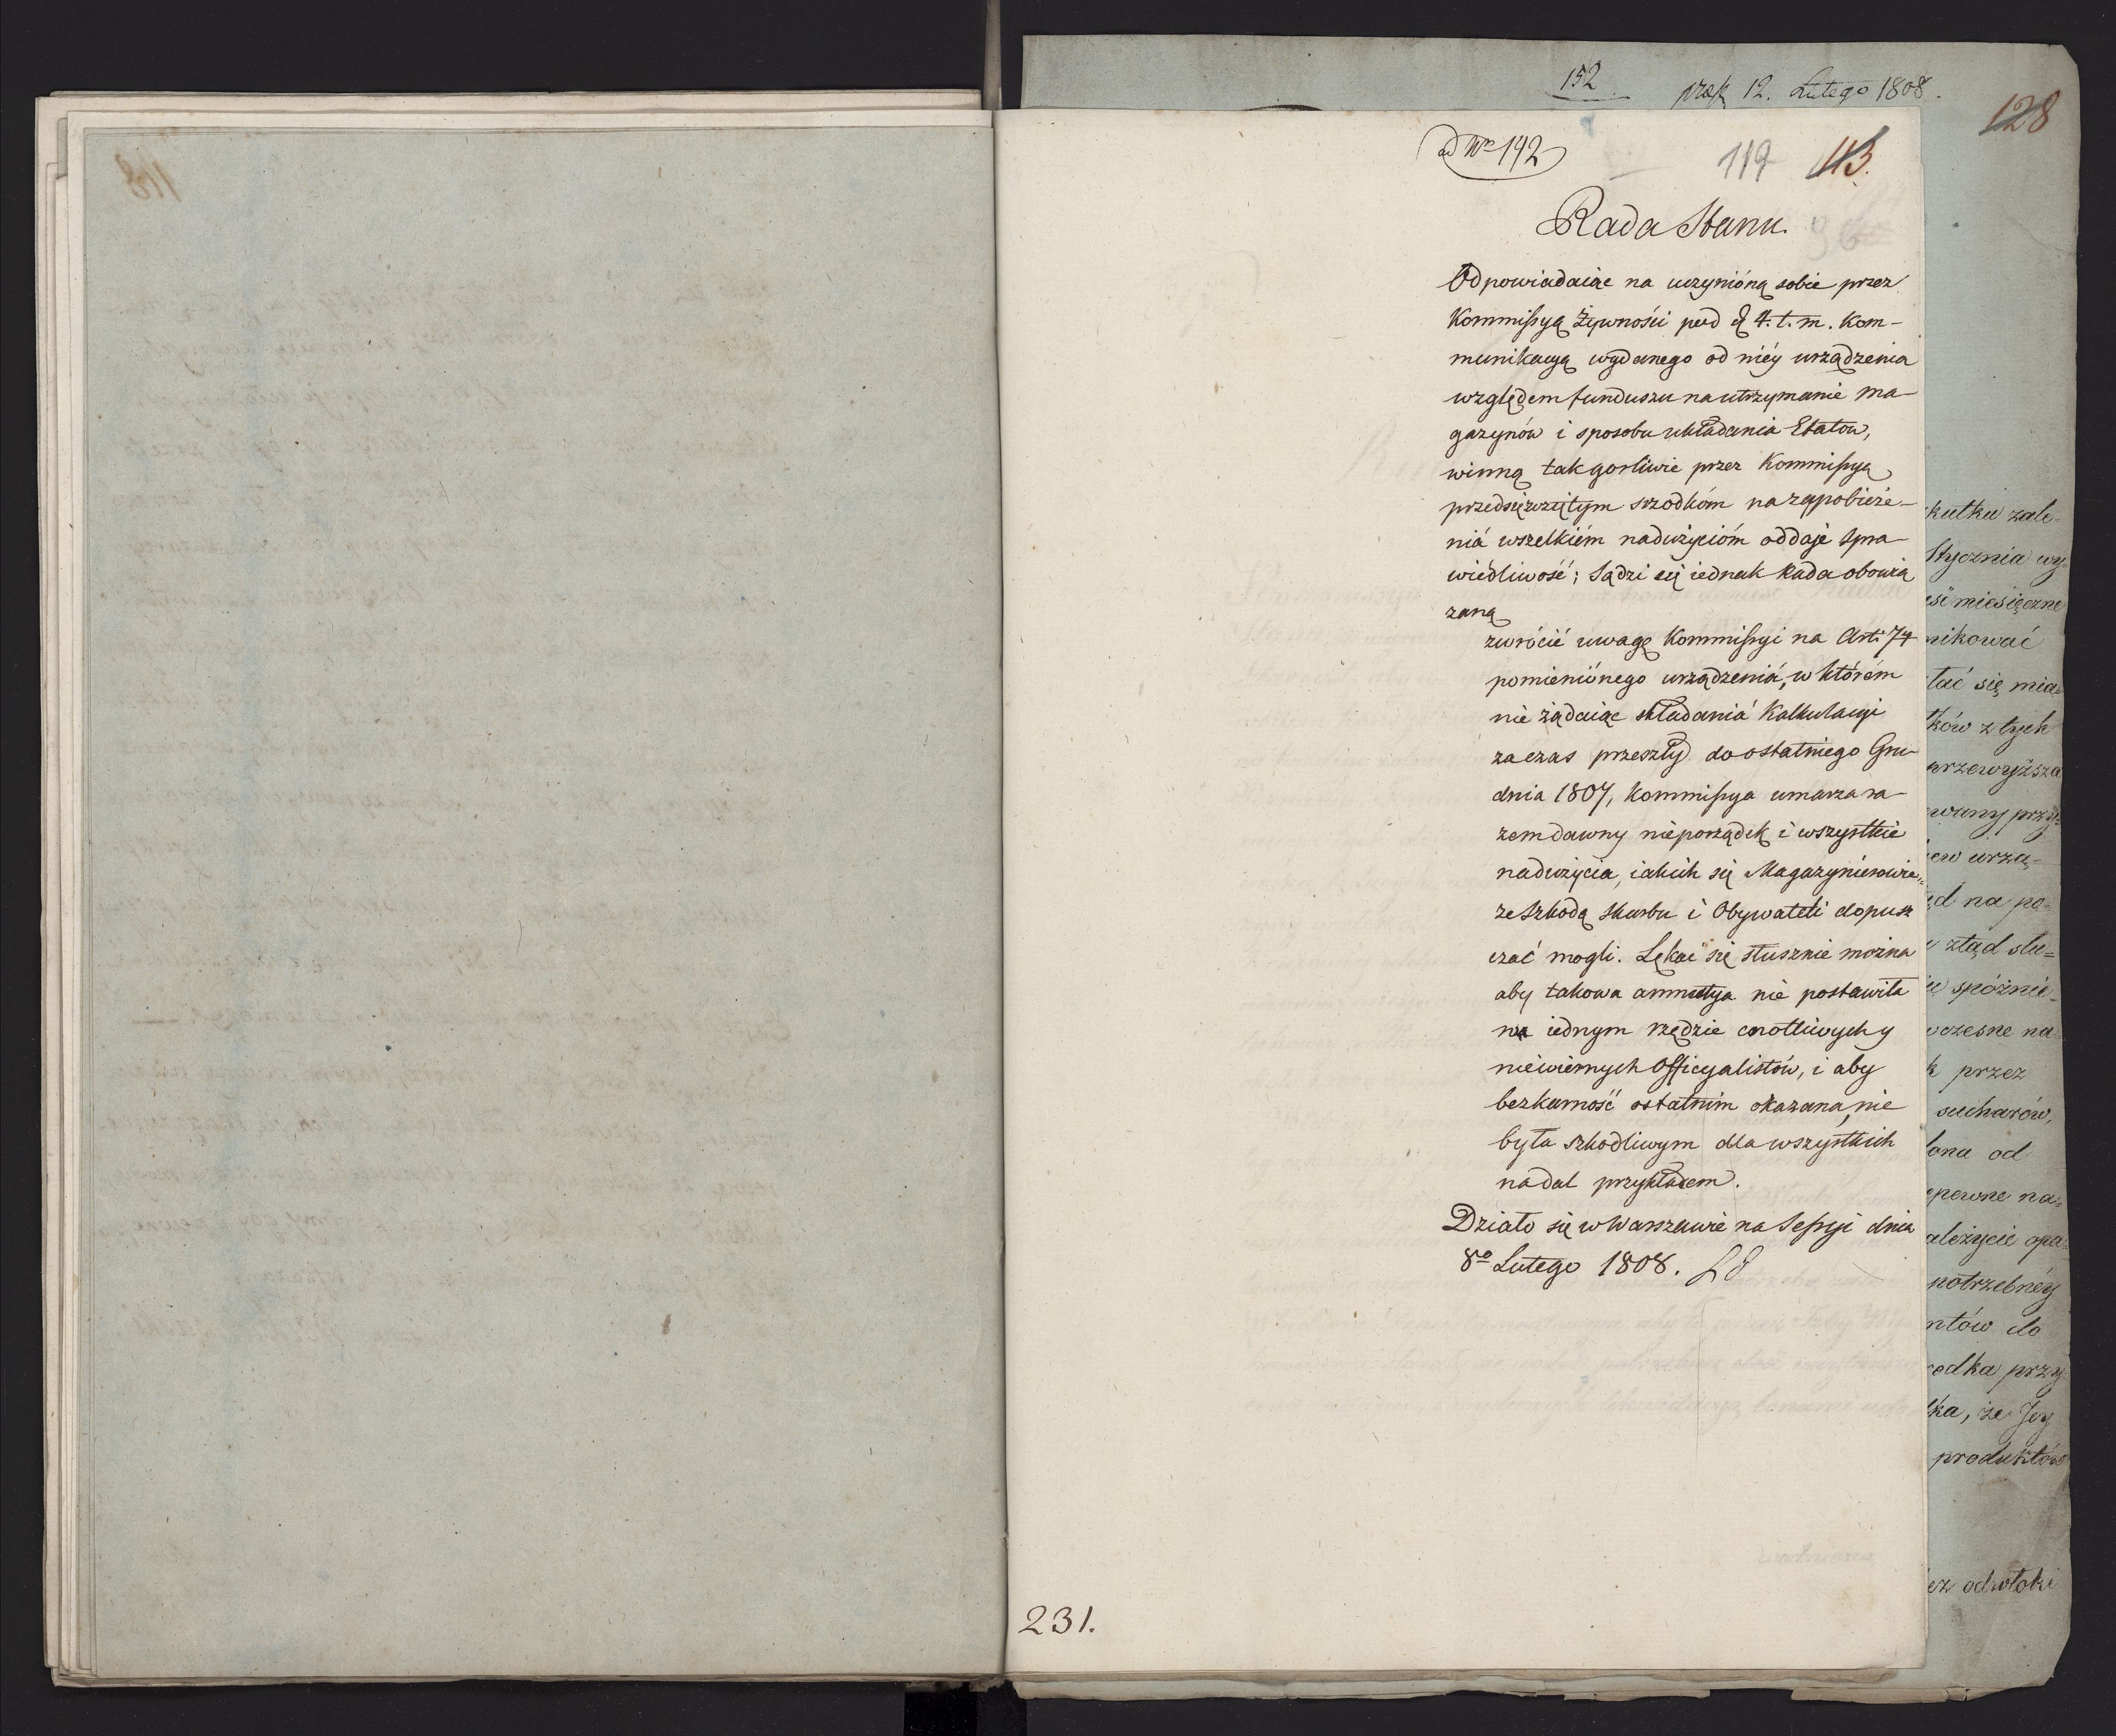 118
152
12. Lutego 1808.
128
ad Nro 142
119 113.
96
Rada Stanu.
Odpowiadaiąc na uczynióną sobie przez
Kommissyą Żywności pod d 4. t. m. Kom-
munikacyą wydanego od niéy urządzenia
względem funduszu na utrzymanie ma-
gazynów i sposobu układania Etatow,
winną tak gorliwie przez Kommissyą
przedsięwziętym srzodkóm na zapobieże-
niá wszelkiém nadużycióm oddaje spra-
wiédliwość; Sądzi się iednak Rada obowią
zaną
zwrócić uwagę Kommissyi na Art: 74
pomieniónego urządzeniá, w którém
nie żądaiąc składaniá Kalkulacyi
za czas przeszły do ostatniego Gru-
dnia 1807, Kommissya umarza ra-
zem dawny nieporządek i wszystkie
nadużycia, iakich się Magazynierowie
ze szkodą skarbu i Obywateli dopusz
czać mogli. Lękać się słusznie można
aby takowa amnestya nie postawiła
w iednym rzędzie cnotliwych y
niewiernych Officyalistów, i aby
bezkarność ostatnim okazana, nie
była szkodliwym dla wszystkich
nadal przykładem.
Działo się w Warszawie na Sessyi dnia
8º Lutego 1808.
231.
kutku zale-
Stycznia wy-
miesięczne
nikować
tać się mia-
ków z tych
przewyższa
urzą-
d na po-
ztąd słu=
spóźnie-
wczesne na
k przez
sucharów,
lona od
pewne na-
ależycie opa-
potrzebnéy
ntów do
rodka przy
ka, że Jey
produktów
ez odwłoki